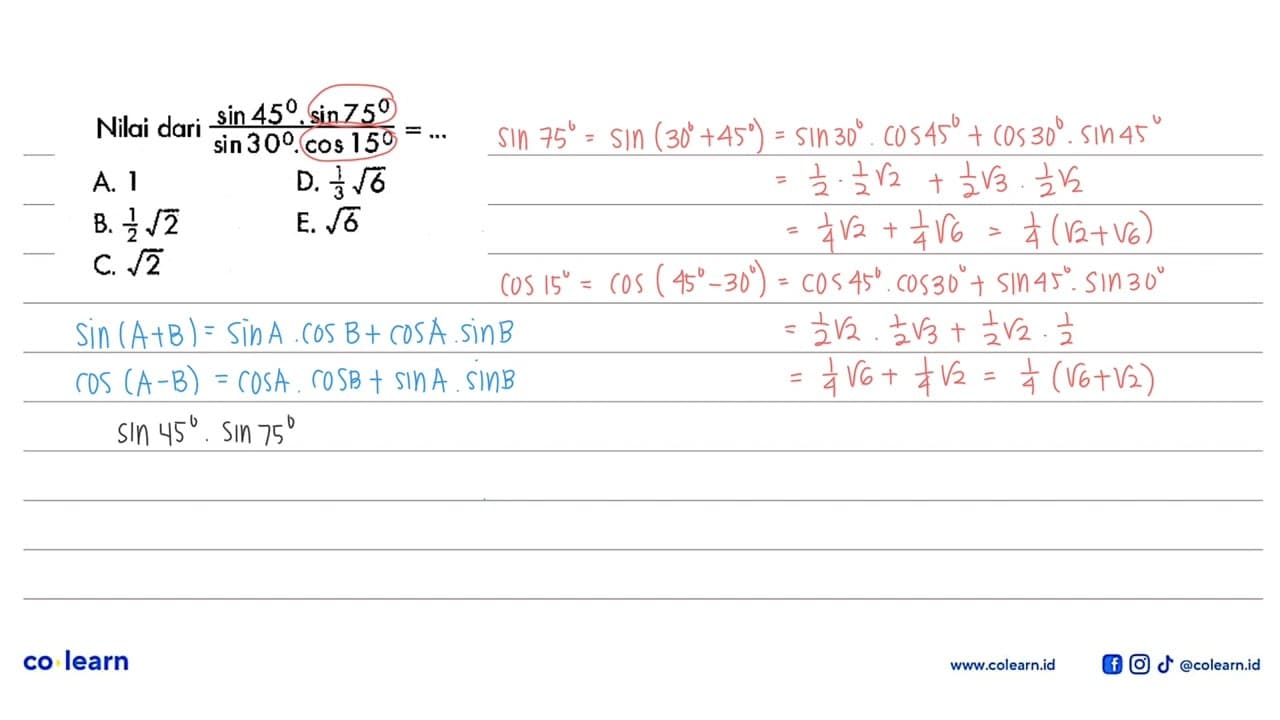 Nilai dari sin 45⁰. sin 75⁰ / sin 30⁰. cos 15⁰ = ...
A. 1
B. 1/2 √2
C. √2
D. 1/3 √6
E. √6
sin 75⁰ = sin (30⁰ + 45⁰) = sin 30⁰ . cos 45⁰ + cos 30⁰ . sin 45⁰
= 1/2 . 1/2 √2 + 1/2 √3 . 1/2 √2
= 1/4 √2 + 1/4 √6 = 1/4 (√2 + √6)
cos 15⁰ = cos (45⁰ - 30⁰) = cos 45⁰ . cos 30⁰ + sin 45⁰ . sin 30⁰
= 1/2 √2 . 1/2 √3 + 1/2 √2 . 1/2
= 1/4 √6 + 1/4 √2 = 1/4 (√6 + √2)
sin (A+B) = sin A . cos B + cos A . sin B
cos (A-B) = cos A . cos B + sin A . sin B
sin 45⁰ . sin 75⁰
co learn
www.colearn.id
@colearn.id